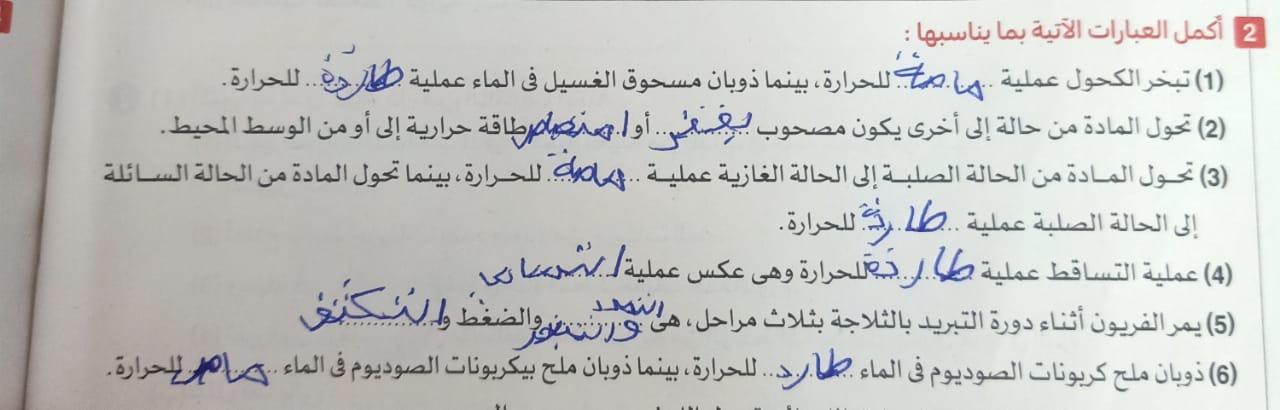 2 أكمل العبارات الآتية بما يناسبها :
(1) تبخر الكحول عملية ماصة للحرارة، بينما ذوبان مسحوق الغسيل فى الماء عملية طاردة للحرارة.
(2) تحول المادة من حالة إلى أخرى يكون مصحوب بفقد أو امتصاص طاقة حرارية إلى أو من الوسط المحيط.
(3) تحول المادة من الحالة الصلبة إلى الحالة الغازية عملية ماصة للحرارة، بينما تحول المادة من الحالة السائلة
إلى الحالة الصلبة عملية طاردة للحرارة.
(4) عملية التساقط عملية طاردة للحرارة وهى عكس عملية
(5) يمر الفريون أثناء دورة التبريد بالثلاجة بثلاث مراحل، هى والضغط و التكثف
(6) ذوبان ملح كربونات الصوديوم فى الماء طارد للحرارة، بينما ذوبان ملح بيكربونات الصوديوم فى الماء ماص للحرارة.